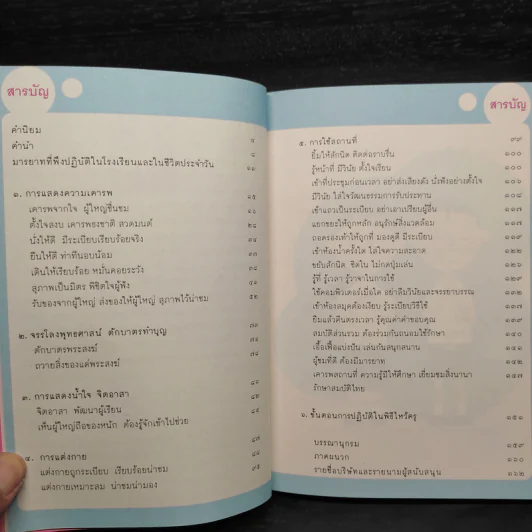 สารบัญ
คำนิยม
คำนำ
มารยาทที่พึงปฏิบัติในโรงเรียนและในชีวิตประจำวัน
๑. การแสดงความเคารพ
เคารพจากใจ ผู้ใหญ่ชื่นชม
ตั้งใจสงบ เคารพธงชาติ สวดมนต์
นั่งให้ดี มีระเบียบเรียบร้อยจริง
ยืนให้ดี ท่าทีนอบน้อม
เดินให้เรียบร้อย หมั่นคอยระวัง
สุภาพเป็นมิตร พิชิตใจผู้ฟัง
รับของจากผู้ใหญ่ ส่งของให้ผู้ใหญ่ สุภาพไว้น่าชม ๕๒
๒. จรรโลงพุทธศาสน์ ตักบาตรทำบุญ
ตักบาตรพระสงฆ์
ถวายสิ่งของแด่พระสงฆ์
๓. การแสดงน้ำใจ จิตอาสา
จิตอาสา พัฒนาผู้เรียน
เห็นผู้ใหญ่ถือของหนัก ต้องรู้จักเข้าไปช่วย
๔. การแต่งกาย
แต่งกายถูกระเบียบ เรียบร้อยน่าชม
แต่งกายเหมาะสม น่าชมน่ามอง
สารบัญ
๕. การใช้สถานที่ ๙๙
ยิ้มให้สักนิด ติดต่อราบรื่น ๑๐๐
รู้หน้าที่ มีวินัย ตั้งใจเรียน
เข้าที่ประชุมก่อนเวลา อย่าส่งเสียงดัง นั่งฟังอย่างตั้งใจ
มีวินัย ใส่ใจวัฒนธรรมการรับประทาน
เข้าแถวเป็นระเบียบ อย่าเอาเปรียบผู้อื่น
แยกขยะให้ถูกหลัก อนุรักษ์สิ่งแวดล้อม
ถอดรองเท้าให้ถูกที่ มองดูดี มีระเบียบ
เข้าห้องน้ำครั้งใด ใส่ใจความสะอาด
ขยับสักนิด ชิดใน ไม่กดปุ่มเล่น
รู้ที่ รู้เวลา รู้ราคาในการใช้
ใช้คอมพิวเตอร์เมื่อใด อย่าลืมวินัยและจรรยาบรรณ
เข้าห้องสมุดต้องเงียบ รู้ระเบียบวิธีใช้
ยืมแล้วคืนตรงเวลา รู้คุณค่าคำขอบคุณ
สมบัติส่วนรวม ต้องร่วมกันถนอมใช้รักษา
เอื้อเฟื้อแบ่งปัน เล่นกันสนุกสนาน
ผู้ชมที่ดี ต้องมีมารยาท
เคารพสถานที่ ความรู้มีให้ศึกษา เยี่ยมชมสิ่งนานา
รักษาสมบัติไทย
๖. ขั้นตอนการปฏิบัติในพิธีไหว้ครู
บรรณานุกรม ๑๕๙
ภาคผนวก
รายชื่อบริษัทและรายนามผู้สนับสนุน ๑๖๒